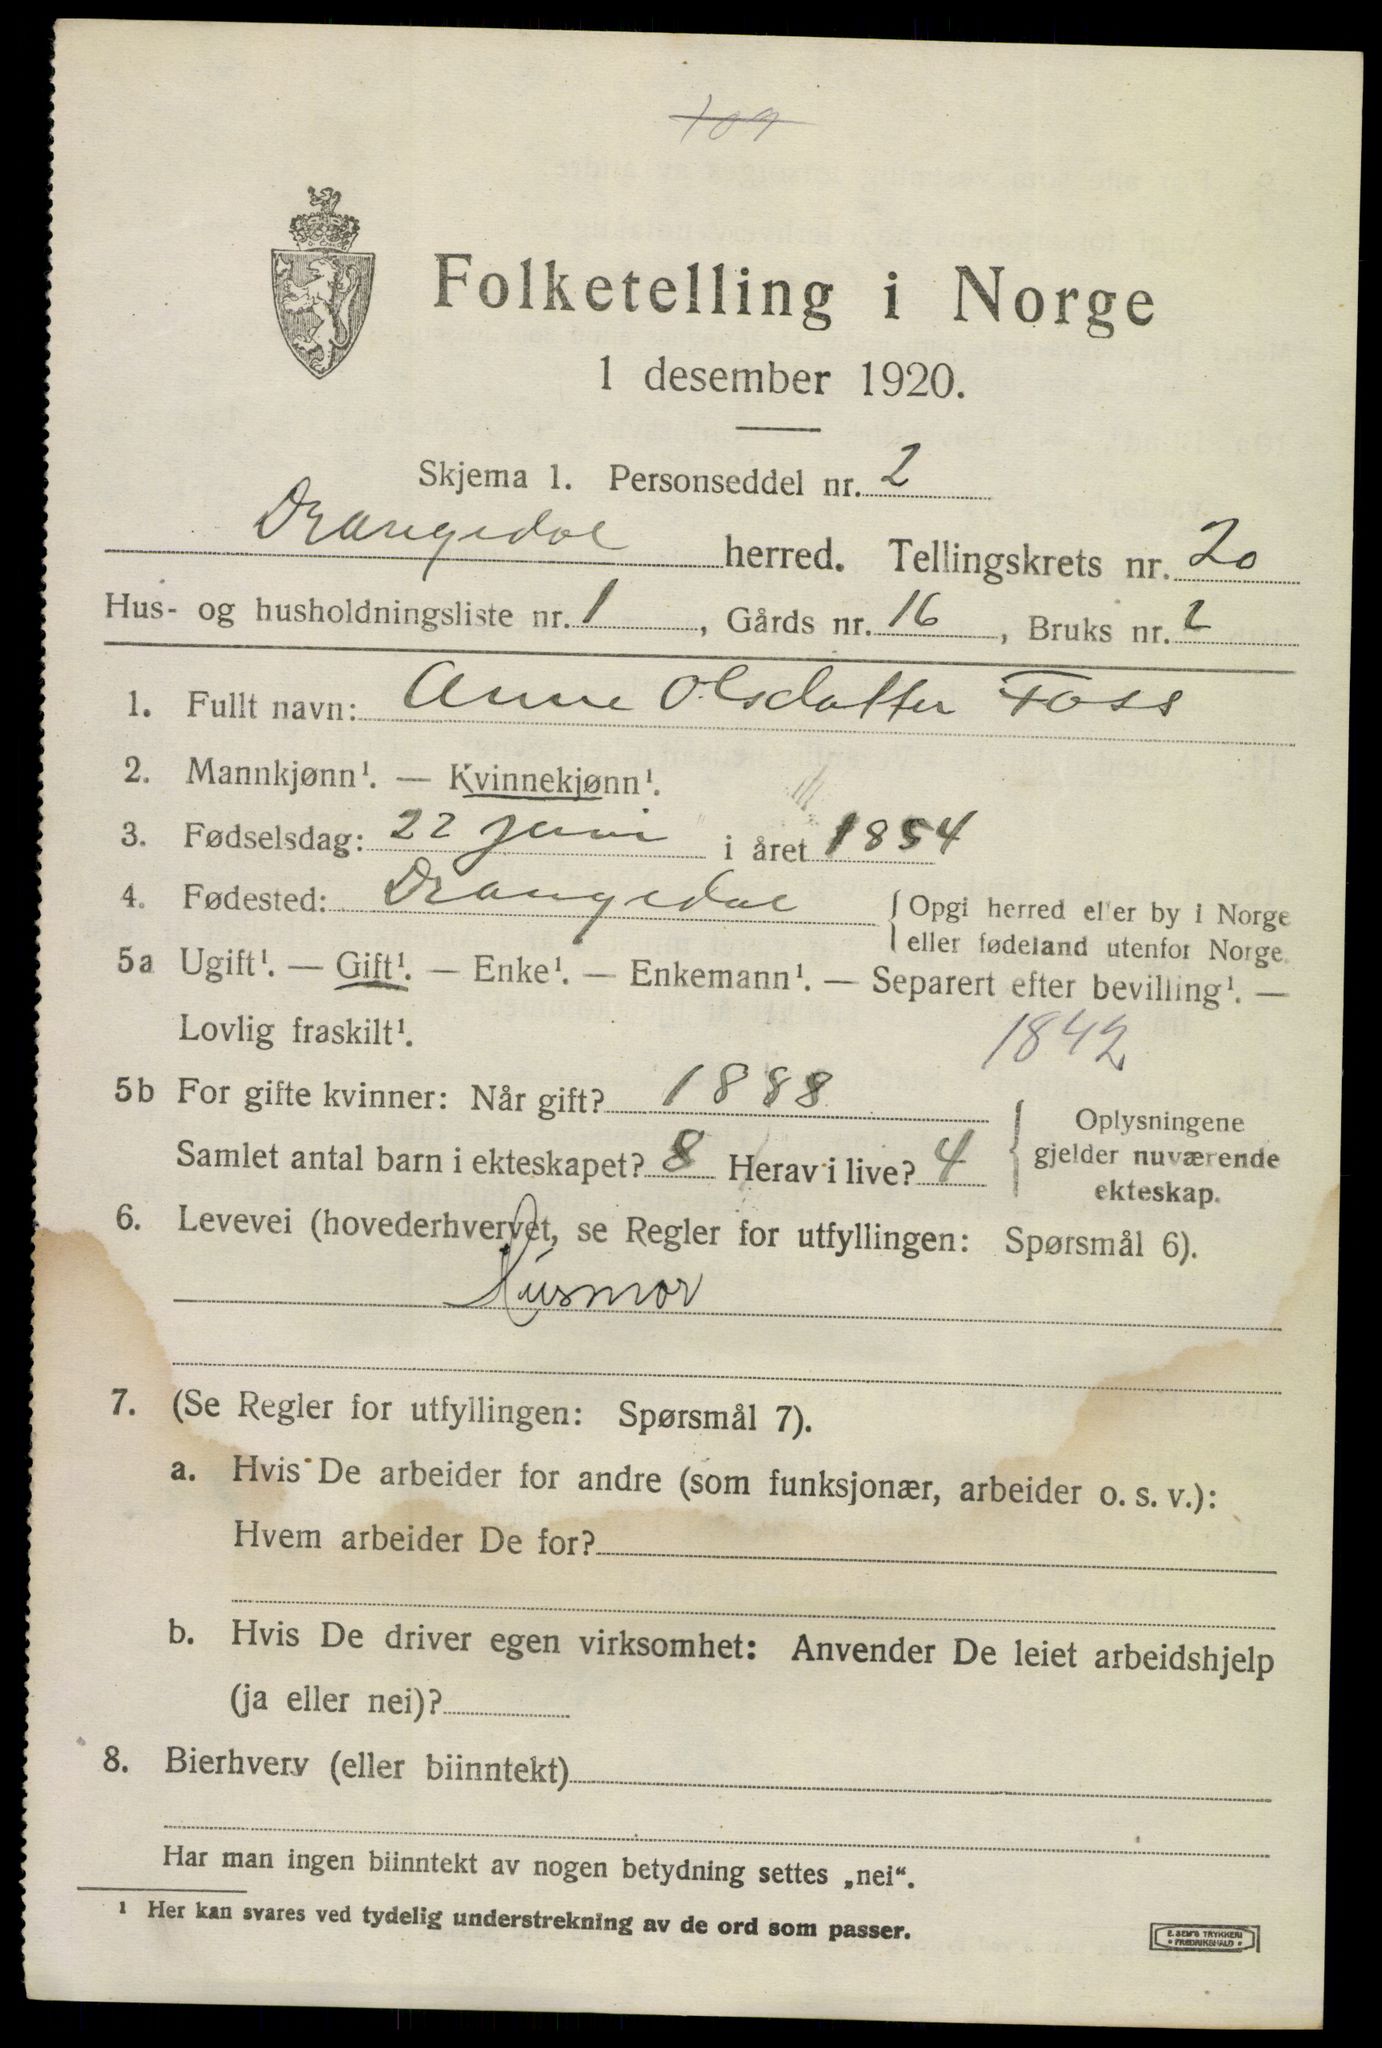 109
Folketelling i Norge
1 desember 1920.
Skjema 1. Personseddel nr. 2
Drangedal herred. Tellingskrets nr. 20
Hus- og husholdningsliste nr. 1, Gårds nr. 16, Bruks nr. 2
1. Fullt navn: Anne Olsdatter Foss
2. Mannkjønn¹. — Kvinnekjønn¹.
3. Fødselsdag: 22 juni i året 1854
4. Fødested: Drangedal { Opgi herred eller by i Norge
eller fødeland utenfor Norge.
5a Ugift¹. — Gift¹. — Enke¹. — Enkemann¹. — Separert efter bevilling¹. —
Lovlig fraskilt¹.
1842
5b For gifte kvinner: Når gift? 1888
Samlet antal barn i ekteskapet? 8 Herav i live? 4
{ Oplysningene
gjelder nuværende
ekteskap.
6. Levevei (hovederhvervet, se Regler for utfyllingen: Spørsmål 6).
Husmor
7. (Se Regler for utfyllingen: Spørsmål 7).
a. Hvis De arbeider for andre (som funksjonær, arbeider o. s. v.):
Hvem arbeider De for?
b. Hvis De driver egen virksomhet: Anvender De leiet arbeidshjelp
(ja eller nei)?
8. Bierhverv (eller biinntekt)
Har man ingen biinntekt av nogen betydning settes „nei“.
¹ Her kan svares ved tydelig understrekning av de ord som passer.
E. SEM'S TRYKKERI
FREDRIKSHALD